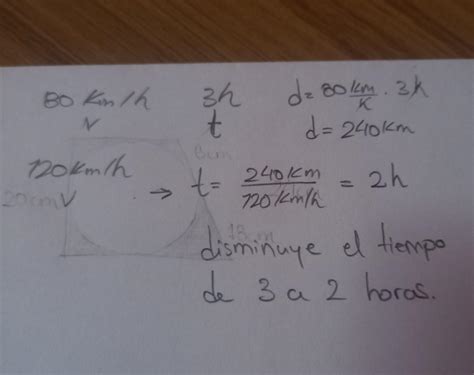 80 Km/h 3h d= 80 km/h · 3h
v t d= 240 Km
120 Km/h → t= 240 Km / 120 Km/h = 2h
20cm v
disminuye el tiempo
de 3 a 2 horas.